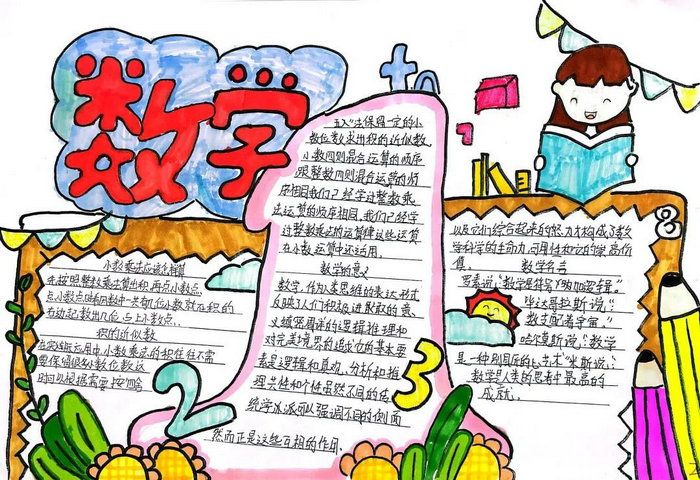 数学
小数乘法应该怎样算
先按照整数乘法算出积,再点小数点。
点小数点时,看因数中一共有几位小数,就在积的
右边起数出几位,点上小数点。
积的近似数
在实际应用中,小数乘法的积往往不需
要保留很多小数位数,这
时可以根据需要,按“四舍
五入”法保留一定的小
数位数,求出积的近似数
小数四则混合运算的顺序
跟整数四则混合运算的顺
序相同,我们已经学过整数乘
法运算的顺序相同,我们已经学
过整数乘法的运算律,这些运算
在小数运算中还适用。
数学的意义
数学,作为人类思维的表达形式
反映了人们积极进取的意
义缜密周详的逻辑推理和
对完美境界的追求它的基本要
素是逻辑和直观、分析和推
理、共性和个性虽然不同的传
统学派可以强调不同的侧面
然而正是这些互相的作用。
以及它们综合起来的努力才构成了数
学科学的生命力、可用性和它的崇高价
值。
数学名言
罗素说:“数学是符号加逻辑”。
毕达哥拉斯说:“
数支配着宇宙”。
哈尔莫斯说:“数学
是一种别具匠心的艺术”米斯说:“
数学是人类的思考中最高的
成就”。
1
2
3
8